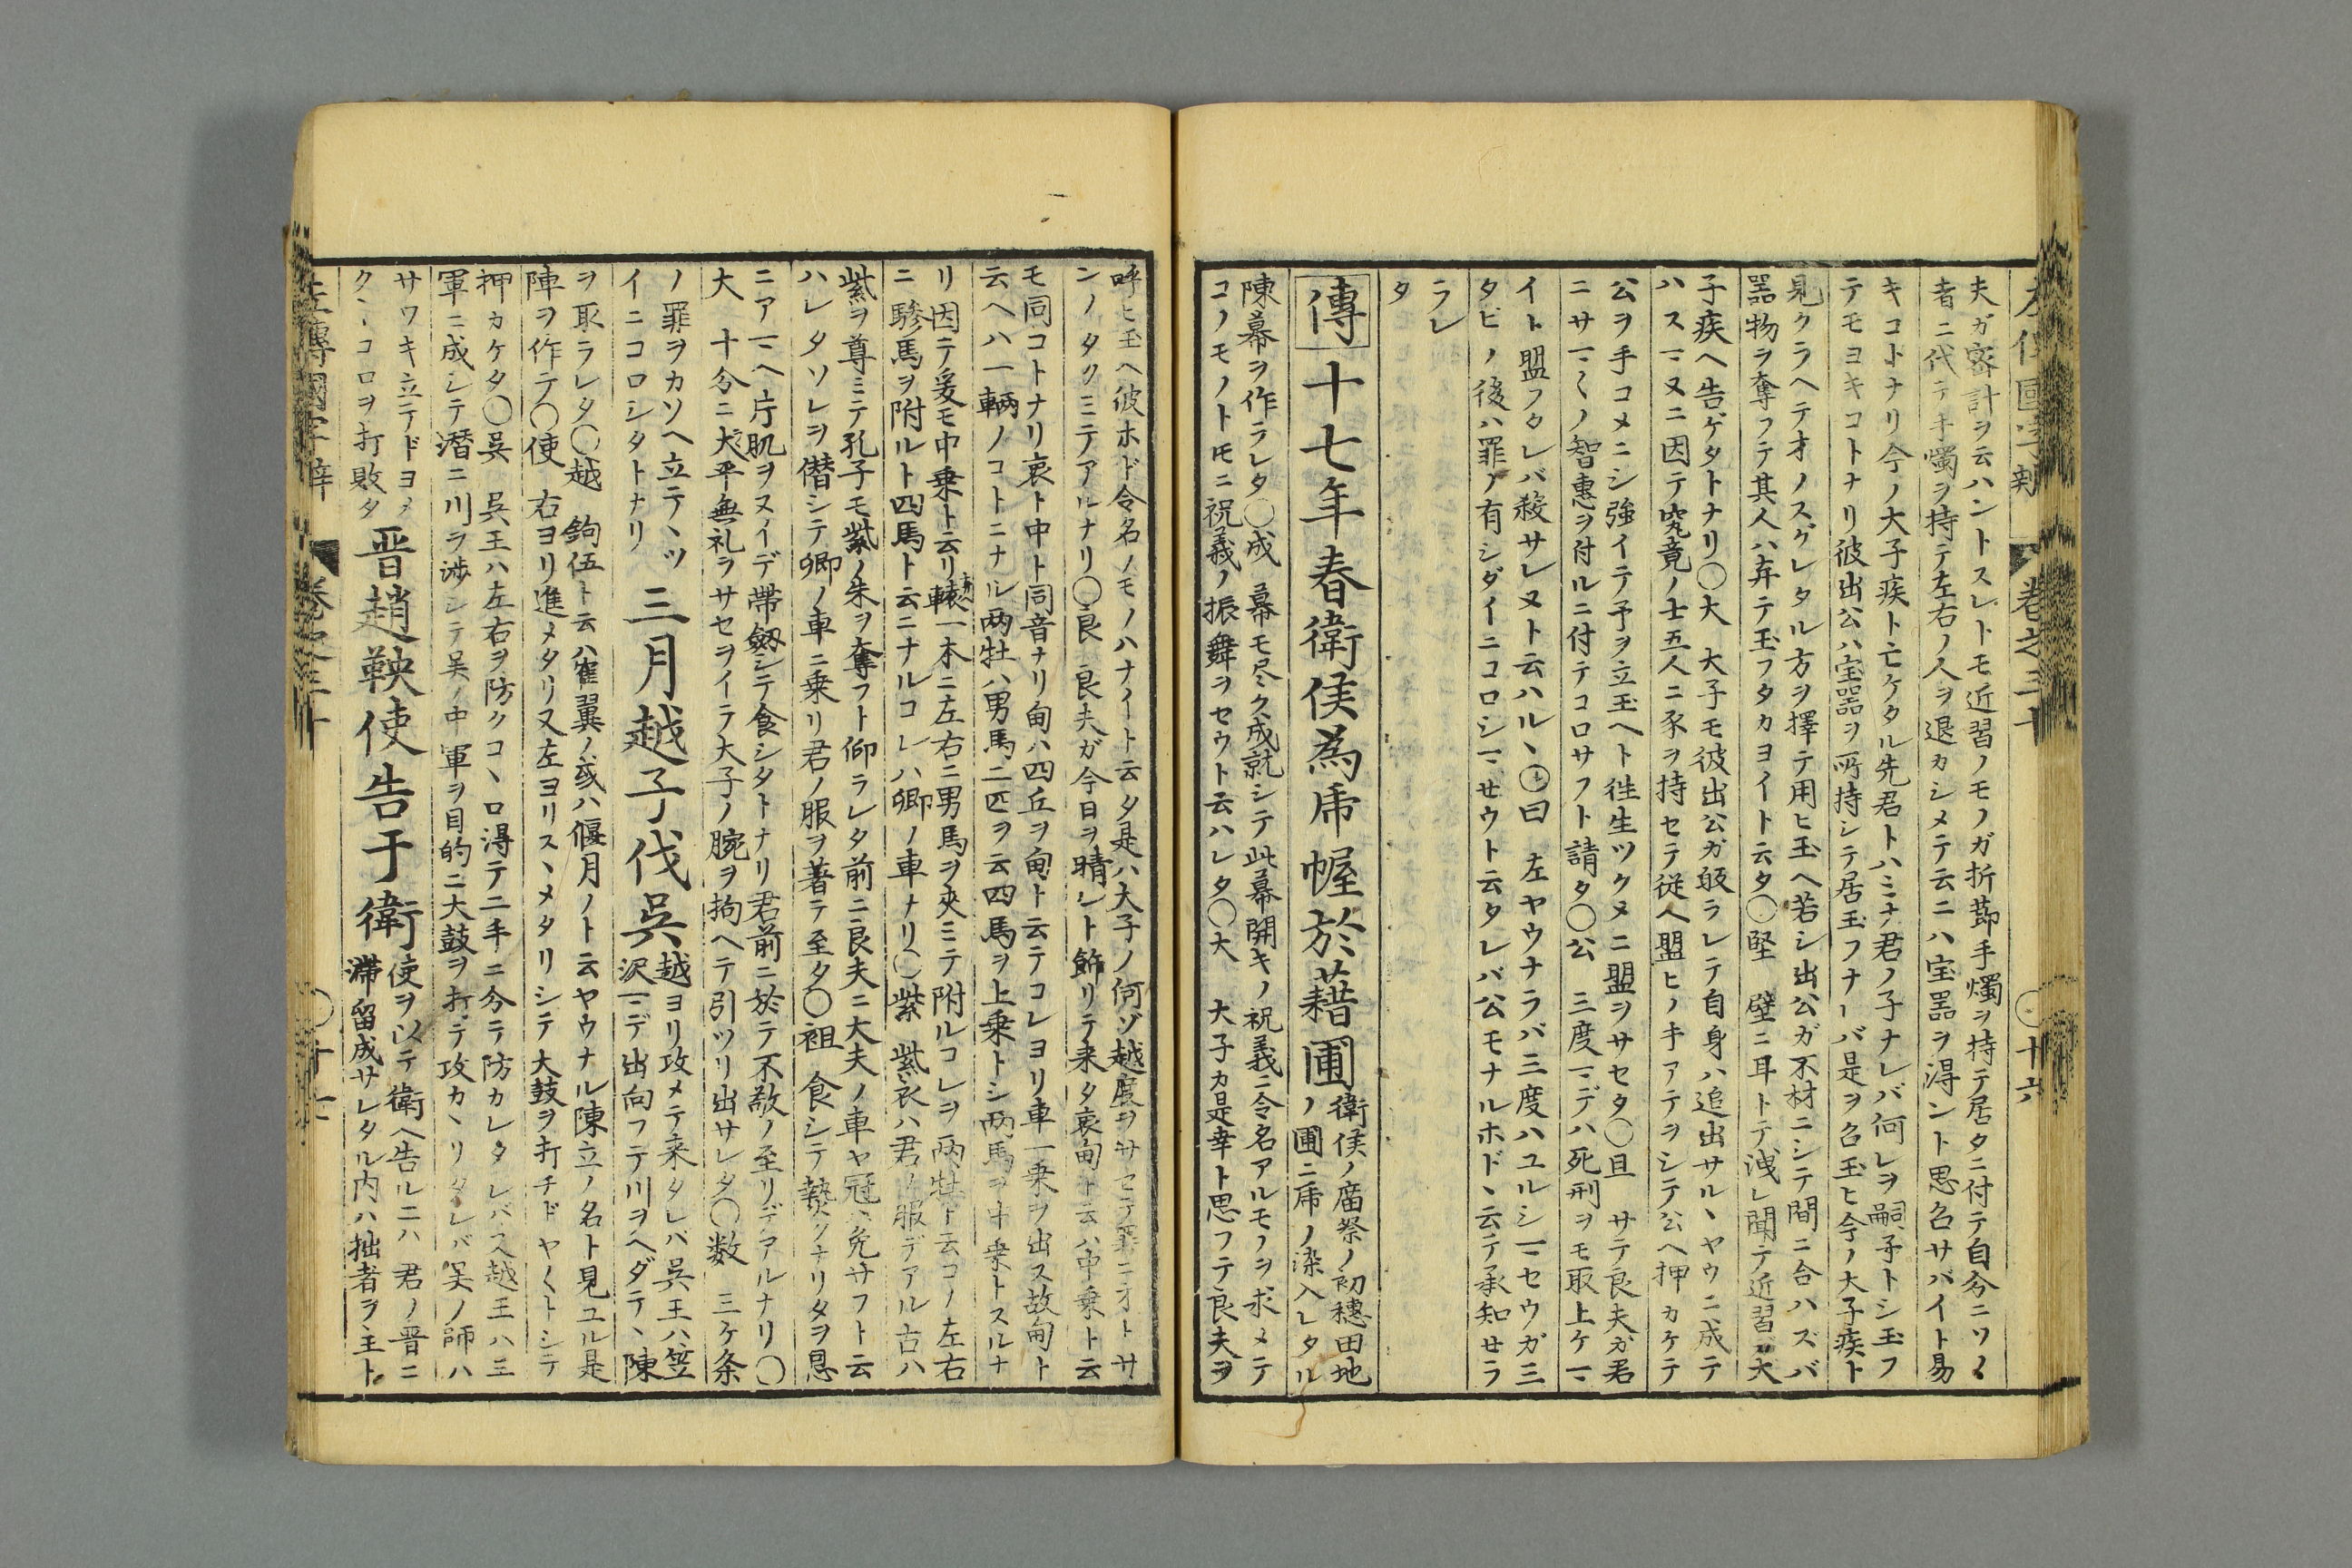 夫ガ密計ヲ云ハントスレトモ近習ノモノガ折節手燭ヲ持テ居タニ付テ自分ニソノ
者ニ代テ手燭ヲ持テ左右ノ人ヲ退カシメテ云ニハ宝噐ヲ淂ント思召サバイト易
キコトナリ今ノ大子疾ト亡ケタル先君トハミナ君ノ子ナレバ何レヲ嗣子トシ玉フ
テモヨキコトナリ彼出公ハ宝噐ヲ所持シテ居玉フナレバ是ヲ召玉ヒ今ノ大子疾ト
見クラヘテオノスグレタル方ヲ擇テ用ヒ玉ヘ若シ出公ガ不材ニシテ間ニ合ハズバ
噐物ヲ奪フテ其人ハ弃テ玉フタカヨイト云タ〇竪 壁ニ耳トテ洩レ聞テ近習ガ大
子疾ヘ告ゲタトナリ〇大 大子モ彼出公ガ皈ラレテ自身ハ追出サルヽヤウニ成テ
ハスマヌニ因テ究竟ノ士五人ニ豕ヲ持セテ従ヘ盟ヒノ手アテヲシテ公ヘ押カケテ
公ヲ手コメニシ強イテ予ヲ立玉ヘト徃生ツクメニ盟ヲサセタ〇且 サテ良夫ガ君
ニサマ〱ノ智惠ヲ付ルニ付テコロサフト請タ〇公 三度マデハ死刑ヲモ取上ケマ
イト盟フタレバ殺サレヌト云ハルヽ〇曰 左ヤウナラバ三度ハユルシマセウガ三
タビノ後ハ罪ノ有シダイニコロシマせウト云タレバ公モナルホドヽ云テ承知せラ
ラレ
タ
傳 十七年春衛侯為乕幄於藉圃 衛侯ノ廟祭ノ初穗田地
ノ圃ニ乕ノ染入レタル
陳幕ヲ作ラレタ〇成 幕モ尽ク成就シテ此幕開キノ祝義ニ令名アルモノヲ求メテ
コノモノトモニ祝義ノ振舞ヲセウト云ハレタ〇大 大子カ是幸ト思フテ良夫ヲ
呼ヒ玉ヘ彼ホド令名ノモノハナイト云タ是ハ大子ノ何ゾ越度ヲサセテ罪ニオトサ
ンノタクミテアルナリ〇良 良夫ガ今日ヲ晴レト飾リテ来タ衷甸ト云ハ中乗ト云
モ同コトナリ衷ト中ト同音ナリ甸ハ四丘ヲ甸ト云テコレヨリ車一乗ヲ出ス故甸ト
云ヘハ一輌ノコトニナル両牡ハ男馬二匹ヲ云四馬ヲ上乗トシ両馬ヲ中乗トスルナ
リ因テ爰モ中乗ト云リ轅一本ニ左右ニ男馬ヲ夾ミテ附ルコレヲ両牡ト云コノ左右
ニ驂馬ヲ附ルト四馬ト云ニナルコレハ卿ノ車ナリ〇紫 紫衣ハ君ノ服デアル古ハ
紫ヲ尊ミテ孔子モ紫ノ朱ヲ奪フト仰ラレタ前ニ良夫ニ大夫ノ車ヤ冠ハ免サフト云
ハレタソレヲ僣シテ卿ノ車ニ乗リ君ノ服ヲ著テ至タ〇袒 食シテ𤍠クナリタヲ思
ニアマヘ片肌ヲヌイデ帶劔シテ食シタトナリ君前ニ於テ不敬ノ至リデアルナリ〇
大 十分ニ犬平無礼ヲサセヲイテ大子ノ腕ヲ拘ヘテ引ツリ出サレタ〇数 三ケ条
ノ罪ヲカソヘ立テヽツ
イニコロシタトナリ 三月越子伐呉 越ヨリ攻メテ来タレバ呉王ハ笠
沢マデ出向フテ川ヲヘダテヽ陳
ヲ取ラレタ〇越 鉤伍ト云ハ隺翼ノ或ハ偃月ノト云ヤウナル陳立ノ名ト見ユル是
陣ヲ作テ〇使 右ヨリ進メタリ又左ヨリスヽメタリシテ大鼓ヲ打チドヤ〱トシテ
押カケタ〇呉 呉王ハ左右ヲ防クコヽロ淂テ二手ニ分テ防カレタレバ又越王ハ三
軍ニ成シテ潜ニ川ヲ渉シテ呉ノ中軍ヲ目的ニ大鼓ヲ打テ攻カヽリタレバ呉ノ師ハ
サワキ立テドヨメ
クヽコロヲ打敗タ 晋趙鞅使告于衛 使ヲ以テ衛ヘ告ルニハ 君ノ晋ニ
滞留成サレタル内ハ拙者ヲ主ト
左傳國字辨 卷之三十 〇十七